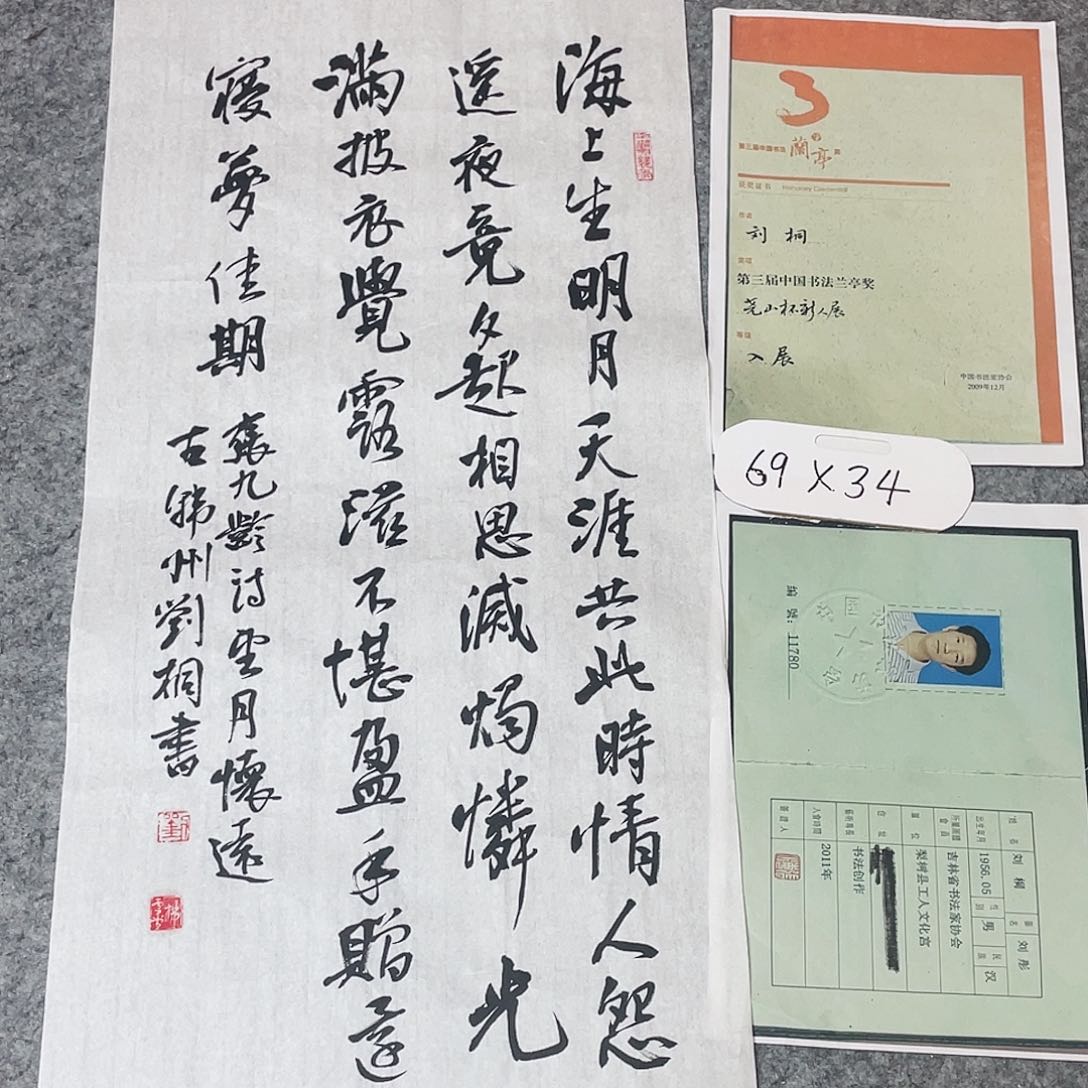 海上生明月天涯共此時情人怨
遥夜竟夕起相思滅燭憐光
滿披衣覺露滋不堪盈手贈還
寝夢佳期
張九齡詩望月懷遠
古韩州劉桐書
第三届中国书法蘭亭奖
获奖证书 Honorary Credential
作者
刘桐
奖项
第三届中国书法兰亭奖
尧山杯新人展
等级
入展
中国书法家协会
2009年12月
69 X 34
编號: 11780
姓名 刘桐 署名 刘彤
出生年月 1956.05 性别 男 民族 汉
所属团體會员 吉林省书法家协会
單位 梨树县工人文化宫
住址
藝術專長 书法创作
入會時間 2011年
簽證人